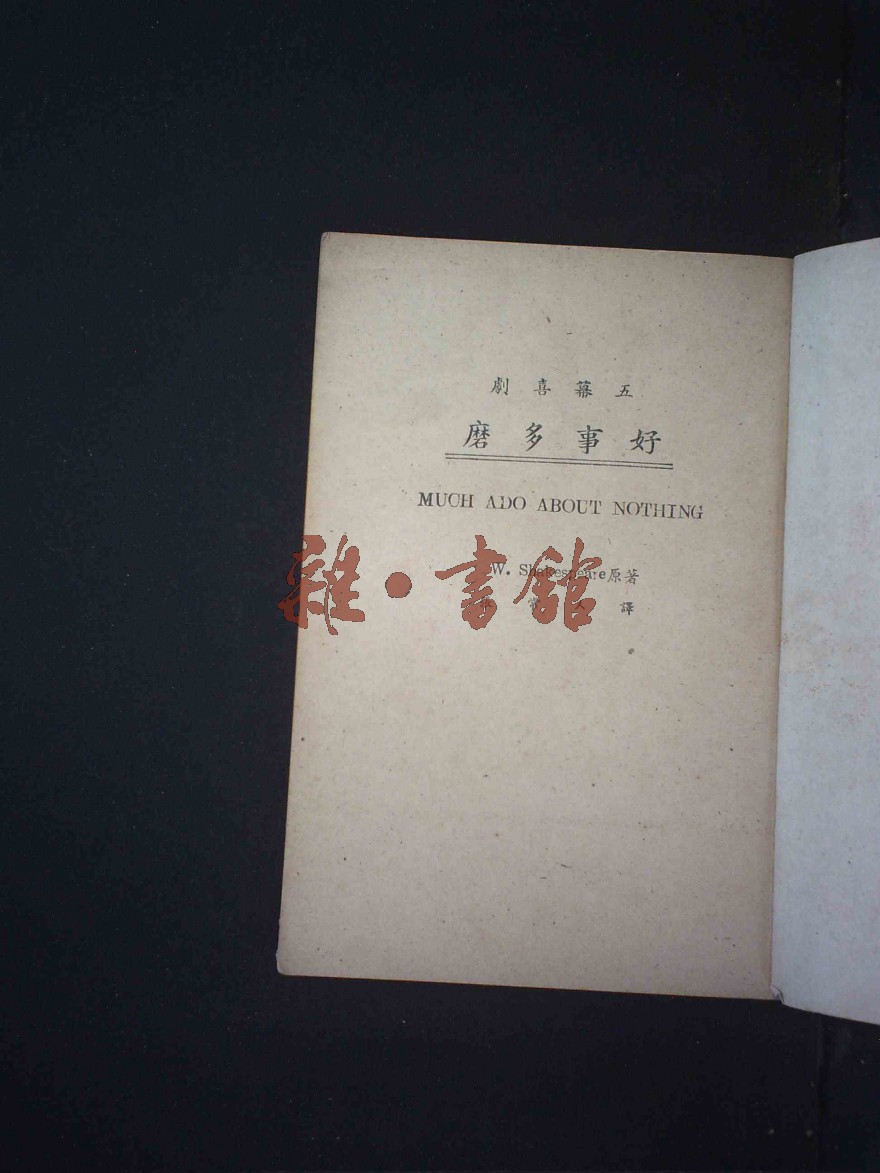 五幕喜劇
好事多磨
MUCH ADO ABOUT NOTHING
W. Shakespeare原著
譯
雜·書館